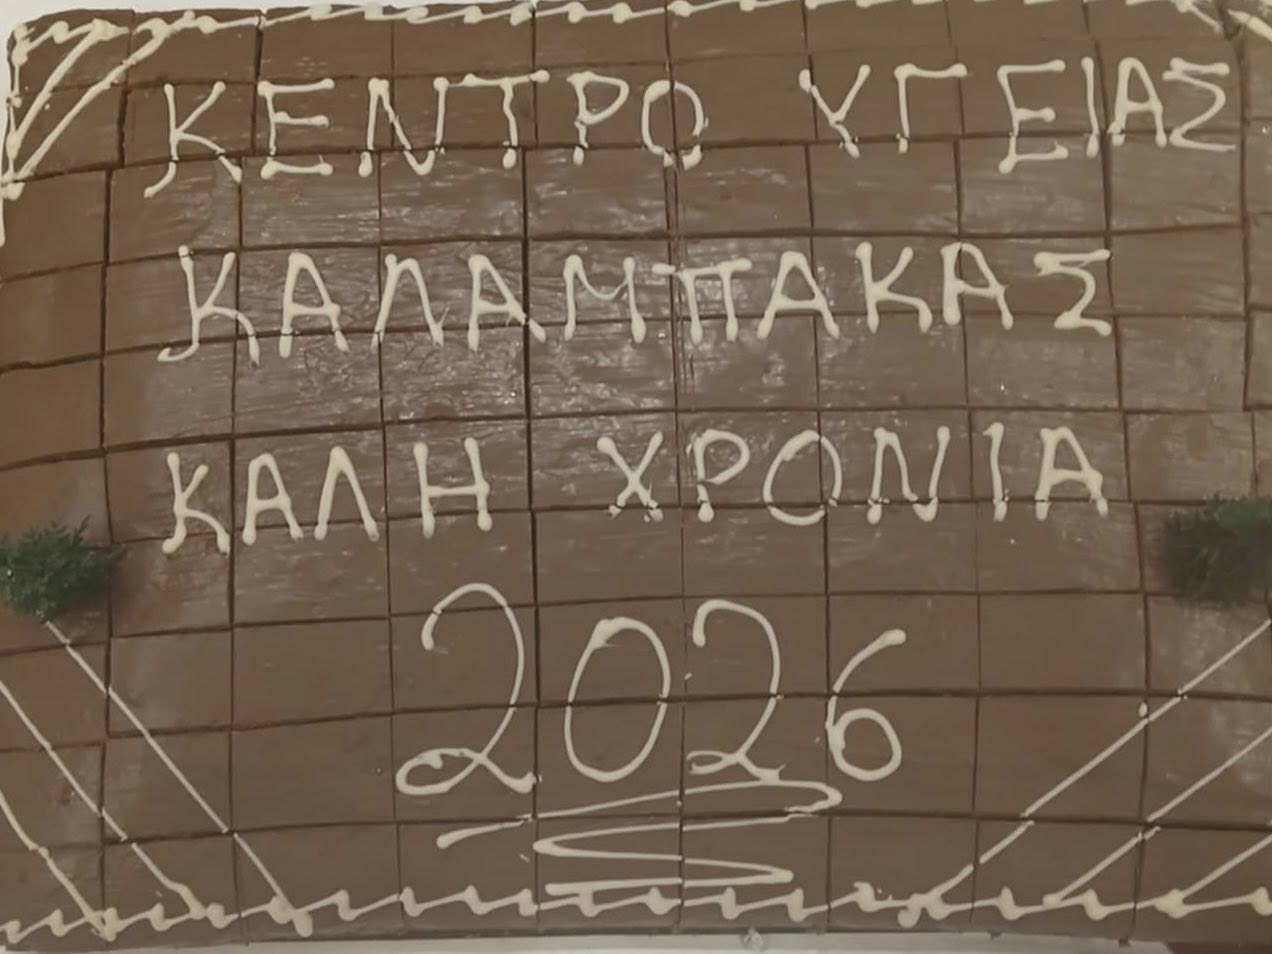 ΚΕΝΤΡΟ ΥΓΕΙΑΣ
ΚΑΛΑΜΠΑΚΑΣ
ΚΑΛΗ ΧΡΟΝΙΑ
2026